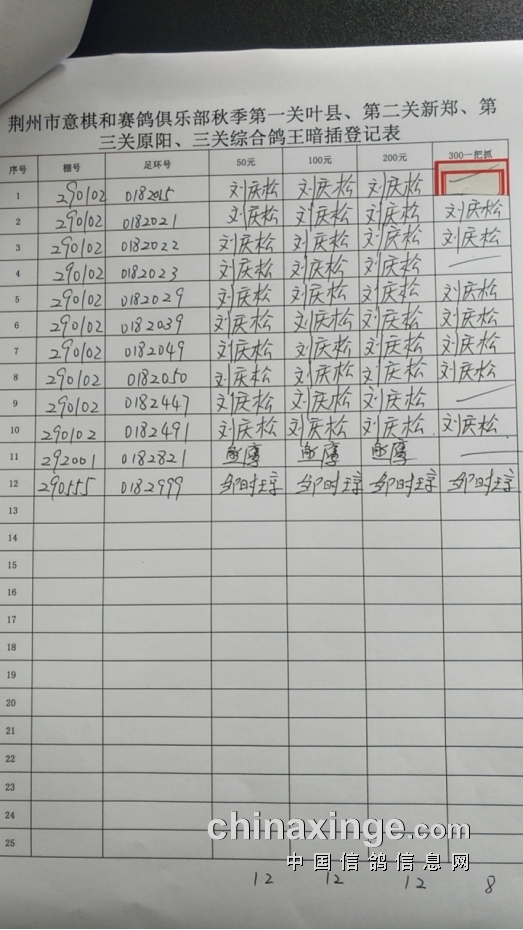 荆州市意棋和赛鸽俱乐部秋季第一关叶县、第二关新郑、第
三关原阳、三关综合鸽王暗插登记表
序号 棚号 足环号 50元 100元 200元 300一把抓
1 290102 0182015 刘庆松 刘庆松 刘庆松
2 290102 0182021 刘庆松 刘庆松 刘庆松 刘庆松
3 290102 0182022 刘庆松 刘庆松 刘庆松 刘庆松
4 290102 0182023 刘庆松 刘庆松 刘庆松 —
5 290102 0182029 刘庆松 刘庆松 刘庆松 刘庆松
6 290102 0182039 刘庆松 刘庆松 刘庆松 刘庆松
7 290102 0182049 刘庆松 刘庆松 刘庆松 刘庆松
8 290102 0182050 刘庆松 刘庆松 刘庆松 刘庆松
9 290102 0182447 刘庆松 刘庆松 刘庆松 —
10 290102 0182491 刘庆松 刘庆松 刘庆松 刘庆松
11 292001 0182821 —
12 290555 0182999
13
14
15
16
17
18
19
20
21
22
23
24
25
chinaxinge.com
中国信鸽信息网
12 12 12 8